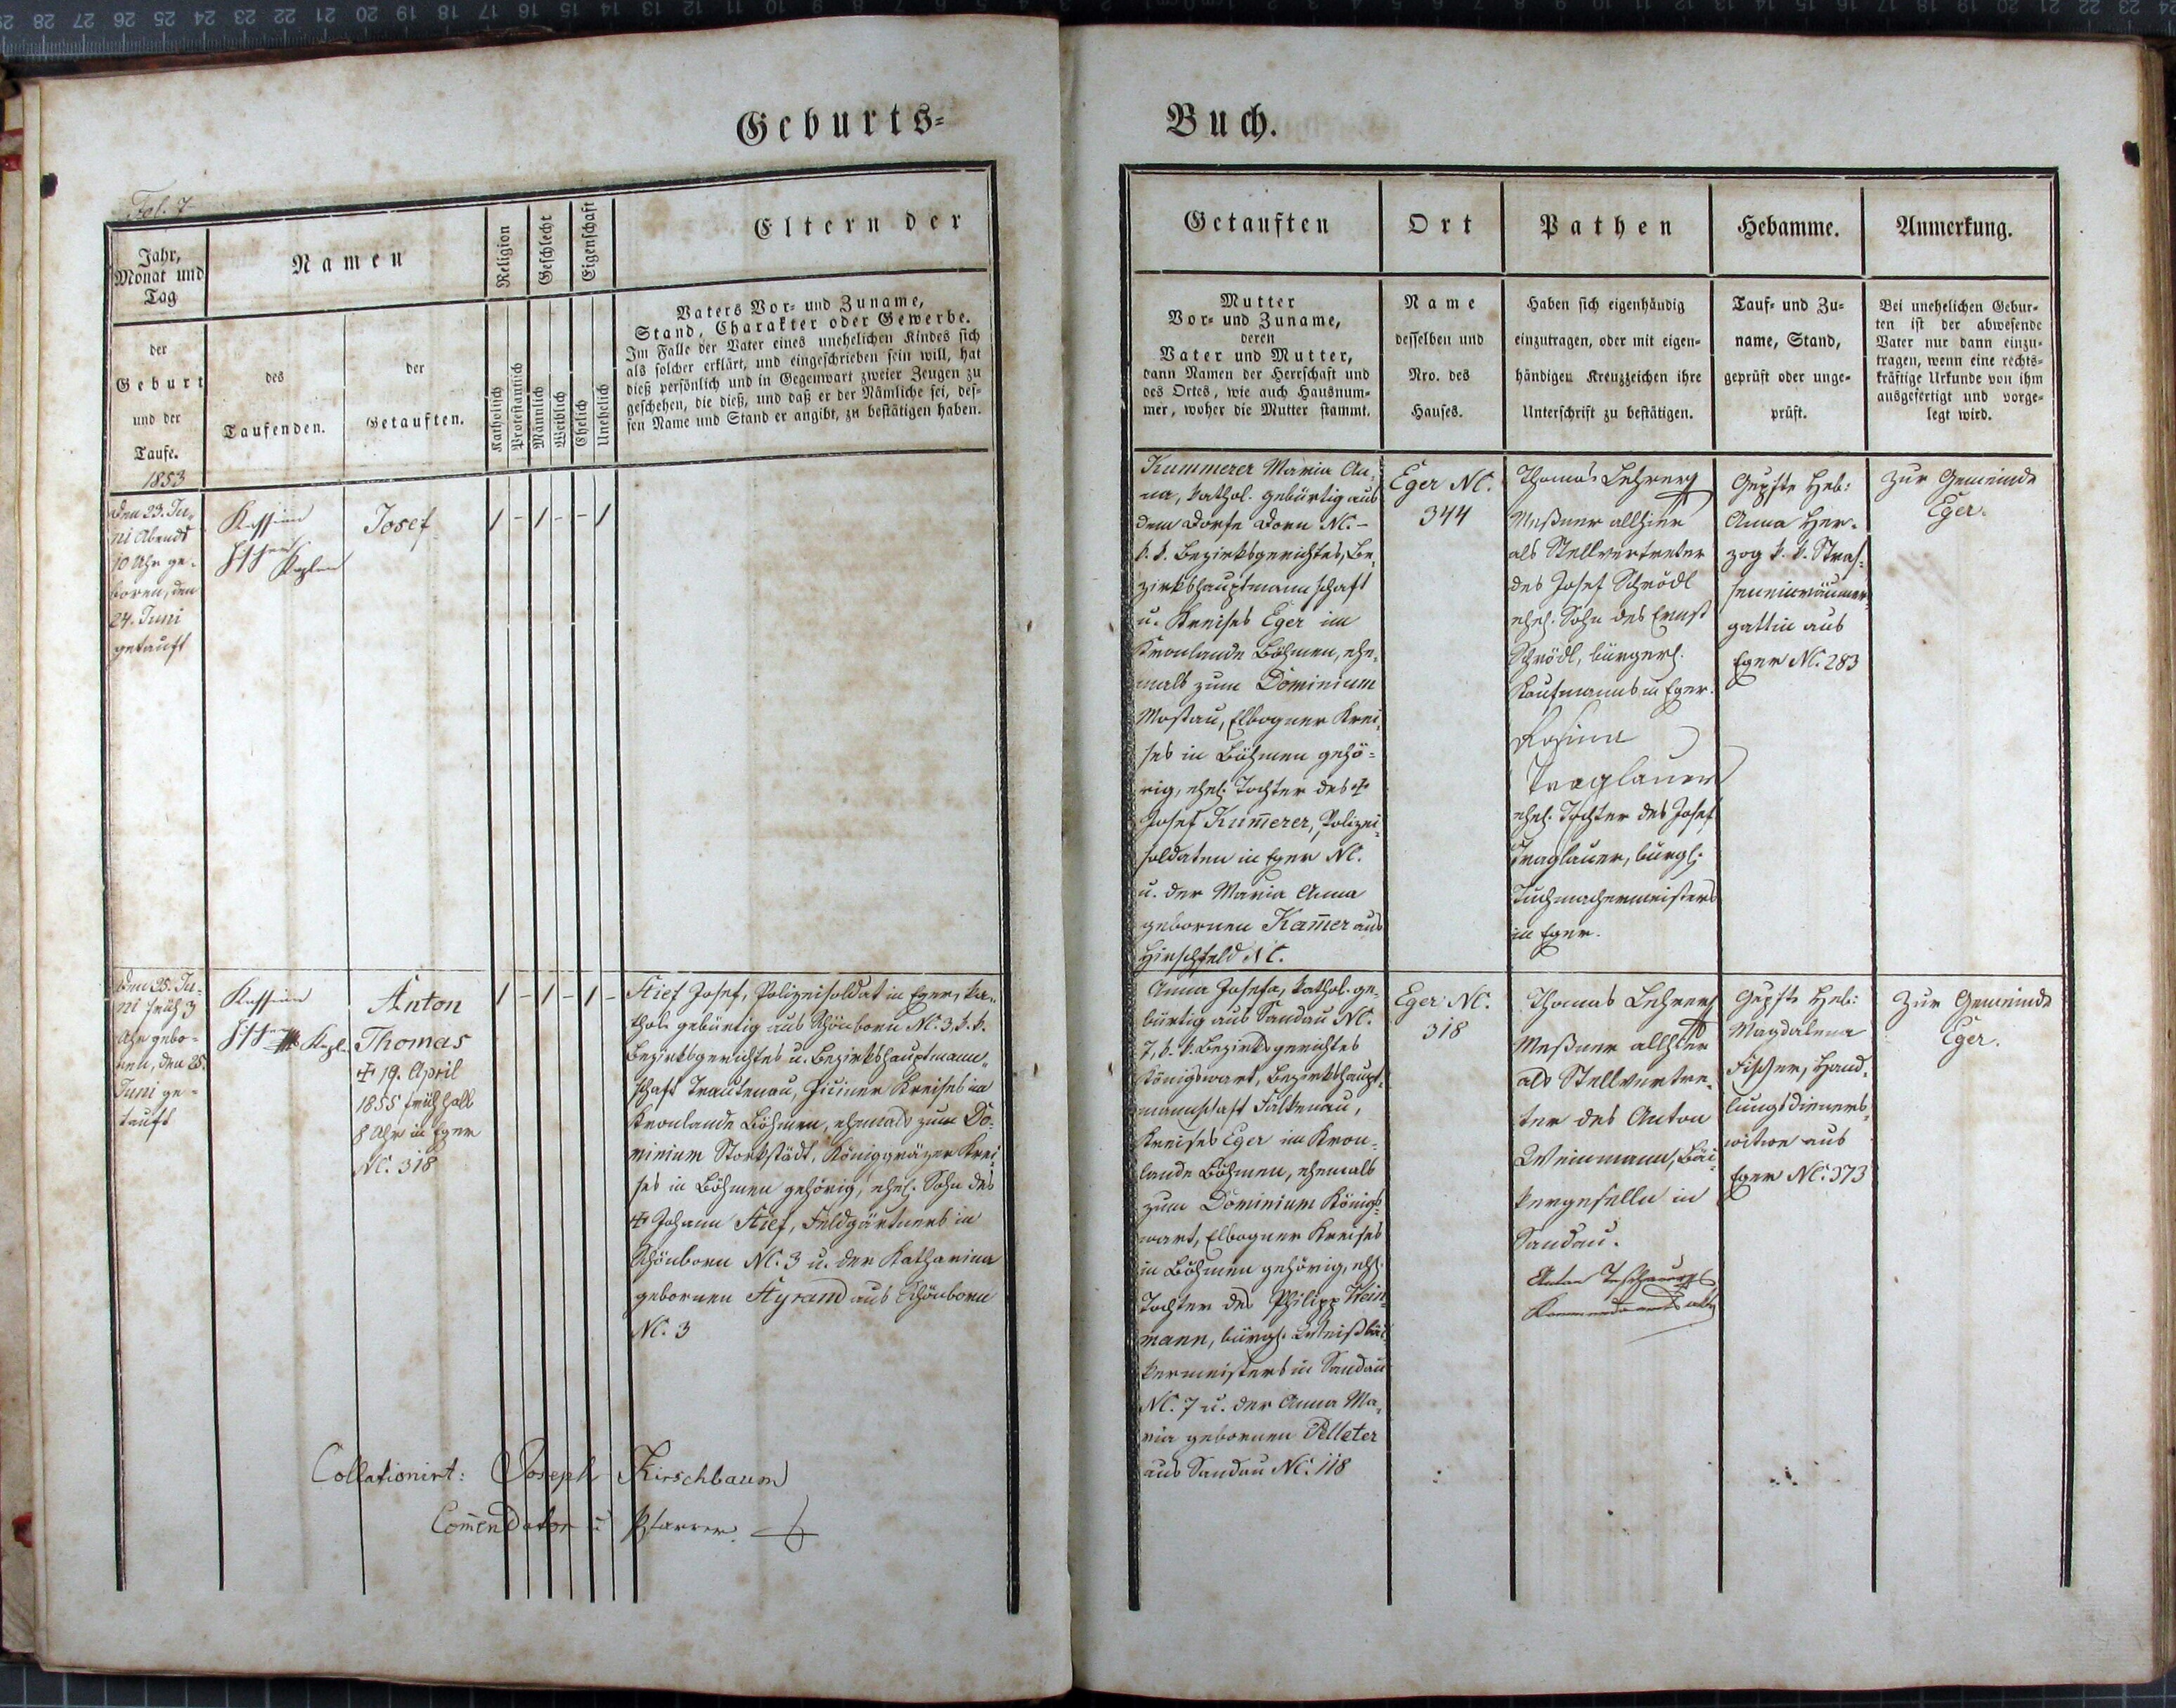 Geburts-
Buch.
Fol. 7
Jahr,
Monat und
Tag
der
Geburt
und der
Taufe.
1853
Namen
des
Taufenden.
der
Getauften.
Religion
Katholisch
Protestantisch
Geschlecht
Männlich
Weiblich
Eigenschaft
Ehelich
Unehelich
Eltern der
Vaters Vor- und Zuname,
Stand, Charakter oder Gewerbe.
Im Falle der Vater eines unehelichen Kindes sich
als solcher erklärt, und eingeschrieben sein will, hat
dieß persönlich und in Gegenwart zweier Zeugen zu
geschehen, die dieß, und daß er der Nämliche sei, des-
sen Name und Stand er angibt, zu bestätigen haben.
Getauften
Mutter
Vor- und Zuname,
deren
Vater und Mutter,
dann Namen der Herrschaft und
des Ortes, wie auch Hausnum-
mer, woher die Mutter stammt.
Ort
Name
desselben und
Nro. des
Hauses.
Pathen
Haben sich eigenhändig
einzutragen, oder mit eigen-
händigen Kreuzzeichen ihre
Unterschrift zu bestätigen.
Hebamme.
Tauf- und Zu-
name, Stand,
geprüft oder unge-
prüft.
Anmerkung.
Bei unehelichen Gebur-
ten ist der abwesende
Vater nur dann einzu-
tragen, wenn eine rechts-
kräftige Urkunde von ihm
ausgefertigt und vorge-
legt wird.
den 23. Ju-
ni Abends
10 Uhr ge-
boren, den
24. Juni
getauft
Kaplan
Josef
/ - / - - /
Kummerer Maria An-
na, kathol. gebürtig aus
dem Dorfe Dorn NC. -
k. k. Bezirksgerichtes, Be-
zirkshauptmannschaft
u. Kreises Eger im
Kronlande Böhmen, ehe-
mals zum Dominium
Mostau, Elbogner Krei-
ses in Böhmen gehö-
rig, ehel. Tochter des ✝
Josef Kum̄erer, Polizei-
soldaten in Eger NC.
u. der Maria Anna
gebornen Kam̄er aus
Hirschfeld NC.
Eger NC.
344
Thomas Lehrer
Meßner allhier
als Stellvertreter
des Josef Schrödl
ehel. Sohn des Ernst
Schrödl, bürgerl.
Kaufmanns in Eger.
Rosina
Traglauer
ehel. Tochter des Josef
Traglauer, bürgl.
Tuchmachermeisters
in Eger.
Geprfte Heb:
Anna Her-
zog k. k. Stras-
seneinräumers-
gattin aus
Eger NC. 283
Zur Gemeinde
Eger.
den 25. Ju-
ni früh 3
Uhr gebo-
ren, den 25.
Juni ge-
tauft
Kapl.
Anton
Thomas
✝ 19. April
1855 früh halb
8 Uhr in Eger
NC. 318
/ - / - / -
Stief Josef, Polizeisoldat in Eger, ka-
thol. gebürtig aus Schönborn NC. 3, k. k.
Bezirksgerichtes u. Bezirkshauptmann-
schaft Trautenau, Jiciner Kreises im
Kronlande Böhmen, ehemals zum Do-
minium Storkstädt, Königgräzer Krei-
ses in Böhmen gehörig, ehel. Sohn des
✝ Johann Stief, Feldgärtners in
Schönborn NC. 3 u. der Katharina
gebornen Styrand aus Schönborn
NC. 3
Anna Josefa, kathol. ge-
bürtig aus Sandau NC.
7, k. k. Bezirksgerichtes
Königswart, Bezirkshaupt-
mannschaft Falkenau,
Kreises Eger im Kron-
lande Böhmen, ehemals
zum Dominium Königs-
wart, Elbogner Kreises
in Böhmen gehörig, ehl.
Tochter des Philipp Wein-
mann, bürgl. Weißbä-
kermeisters in Sandau
NC. 7 u. der Anna Ma-
ria gebornen Pelleter
aus Sandau NC. 118
Eger NC.
318
Thomas Lehrer
Meßner allhier
als Stellvertre-
ter des Anton
Weinmann, Bä-
kergeselle in
Sandau.
Anton
Geprfte Heb:
Magdalena
Fischer, Hand-
lungsdieners-
witwe aus
Eger NC. 373
Zur Gemeinde
Eger.
Collationirt: Joseph Kirschbaum
Com̄endator u Pfarrer.